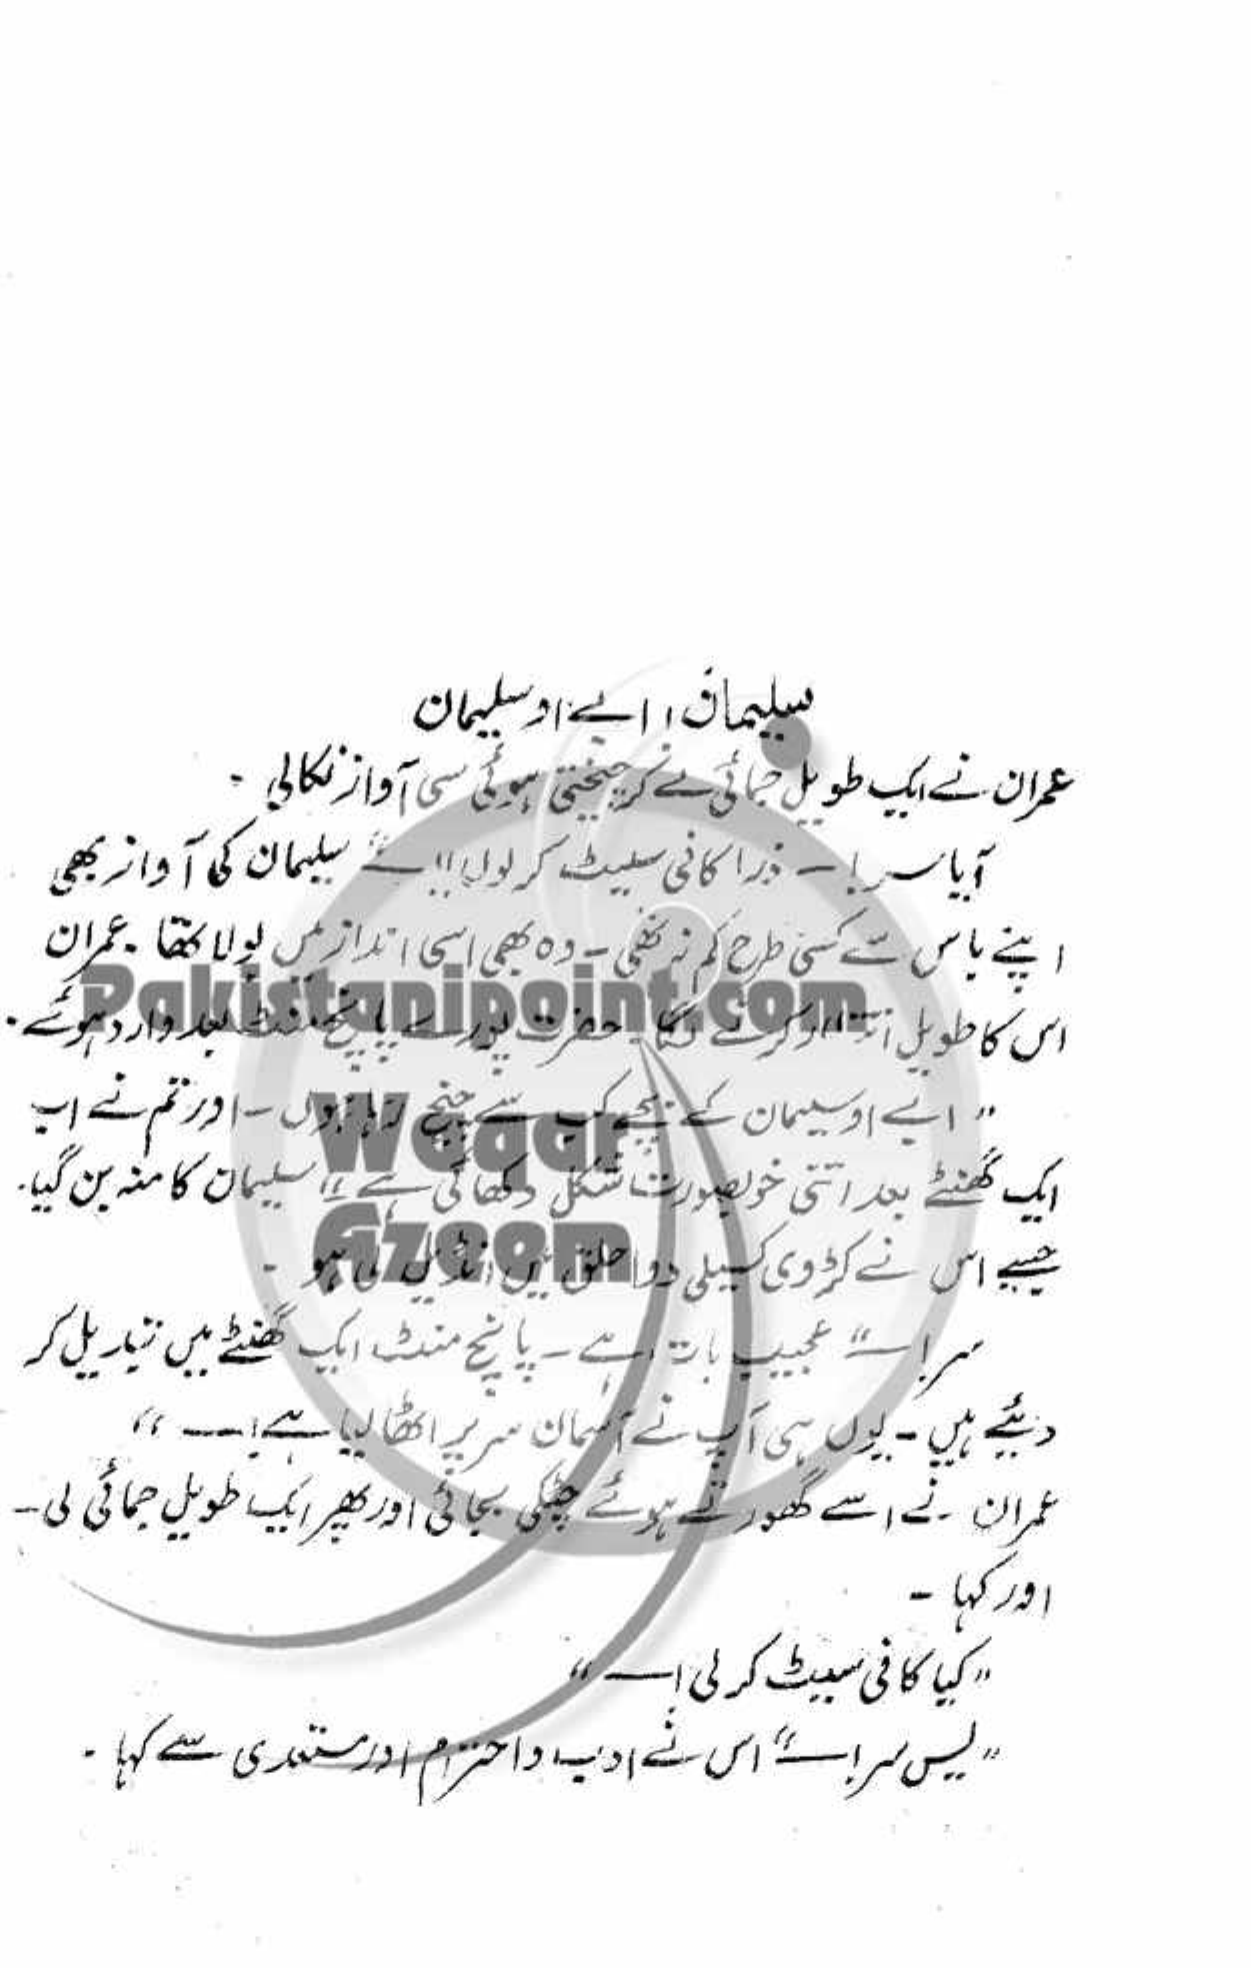 سلیمان، ابے او سلیمان
عمران نے ایک طویل جمائی لے کر چیختی ہوئی سی آواز نکالی -
آیا سر! — ذرا کافی سیٹ کر لوں!! —“ سلیمان کی آواز بھی
اپنے باس سے کسی طرح کم نہ تھی - وہ بھی اسی انداز میں بولا تھا - عمران
اس کا طویل انتظار کرنے لگا - حضرت پورے پانچ منٹ بعد وارد ہوئے -
” ابے او سلیمان کے بچے کب سے چیخ رہا ہوں - اور تم نے اب
ایک گھنٹے بعد اتنی خوبصورت شکل دکھائی ہے !!“ سلیمان کا منہ بن گیا -
جیسے اس نے کڑوی کسیلی دوا حلق میں انڈیل لی ہو -
سر! —“ عجیب بات ہے - پانچ منٹ ایک گھنٹے میں تبدیل کر
دیئے ہیں - یوں ہی آپ نے آسمان سر پر اٹھا لیا ہے! — “
عمران نے اسے گھورتے ہوئے چٹکی بجائی اور پھر ایک طویل جمائی لی -
اور کہا -
” کیا کافی سیٹ کر لی! — “
” یس سر! —“ اس نے ادب و احترام اور مستعدی سے کہا -
Pakistanipoint.com
Waqar
Azeem